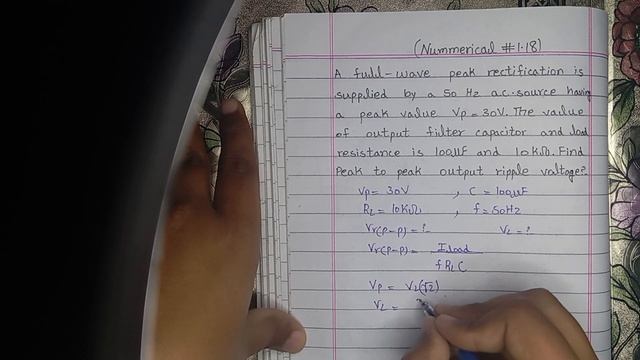 (Nummerical #1.18)
A full-wave peak rectification is
supplied by a 50 Hz a.c. source having
a peak value Vp = 30V. The value
of output filter capacitor and load
resistance is 100μF and 10 KΩ. Find
Peak to peak output ripple voltage?
Vp = 30V , C = 100μF
RL = 10KΩ , f = 50Hz
Vr(p-p) = ? VL = ?
Vr(p-p) = I load
f RL C
Vp = VL(√2)
VL =